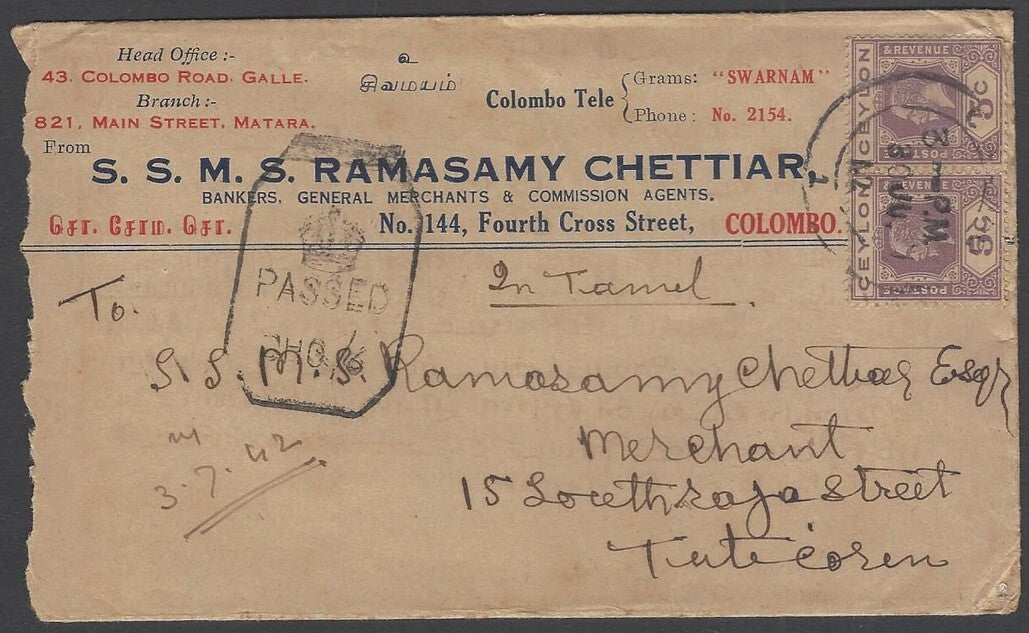 Head Office :-
43. COLOMBO ROAD. GALLE.
Branch :-
821, MAIN STREET, MATARA.
உ
சிவமயம்
Colombo Tele
Grams: "SWARNAM"
Phone: No. 2154.
From
S. S. M. S. RAMASAMY CHETTIAR
BANKERS, GENERAL MERCHANTS & COMMISSION AGENTS.
No. 144, Fourth Cross Street, COLOMBO.
& REVENUE
CEYLON
POSTAGE
CEYLON
POSTAGE
3 - P.M.
PASSED
In Tamil.
To.
S. S. M. S. Ramasamy Chettiar Esqr
Merchant
15 Street
Tuticoren
3.7.42